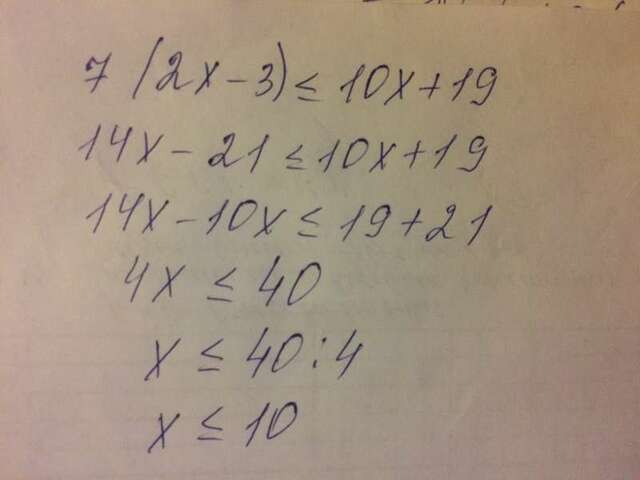 7 (2x - 3) ≤ 10x + 19
14x - 21 ≤ 10x + 19
14x - 10x ≤ 19 + 21
4x ≤ 40
x ≤ 40 : 4
x ≤ 10